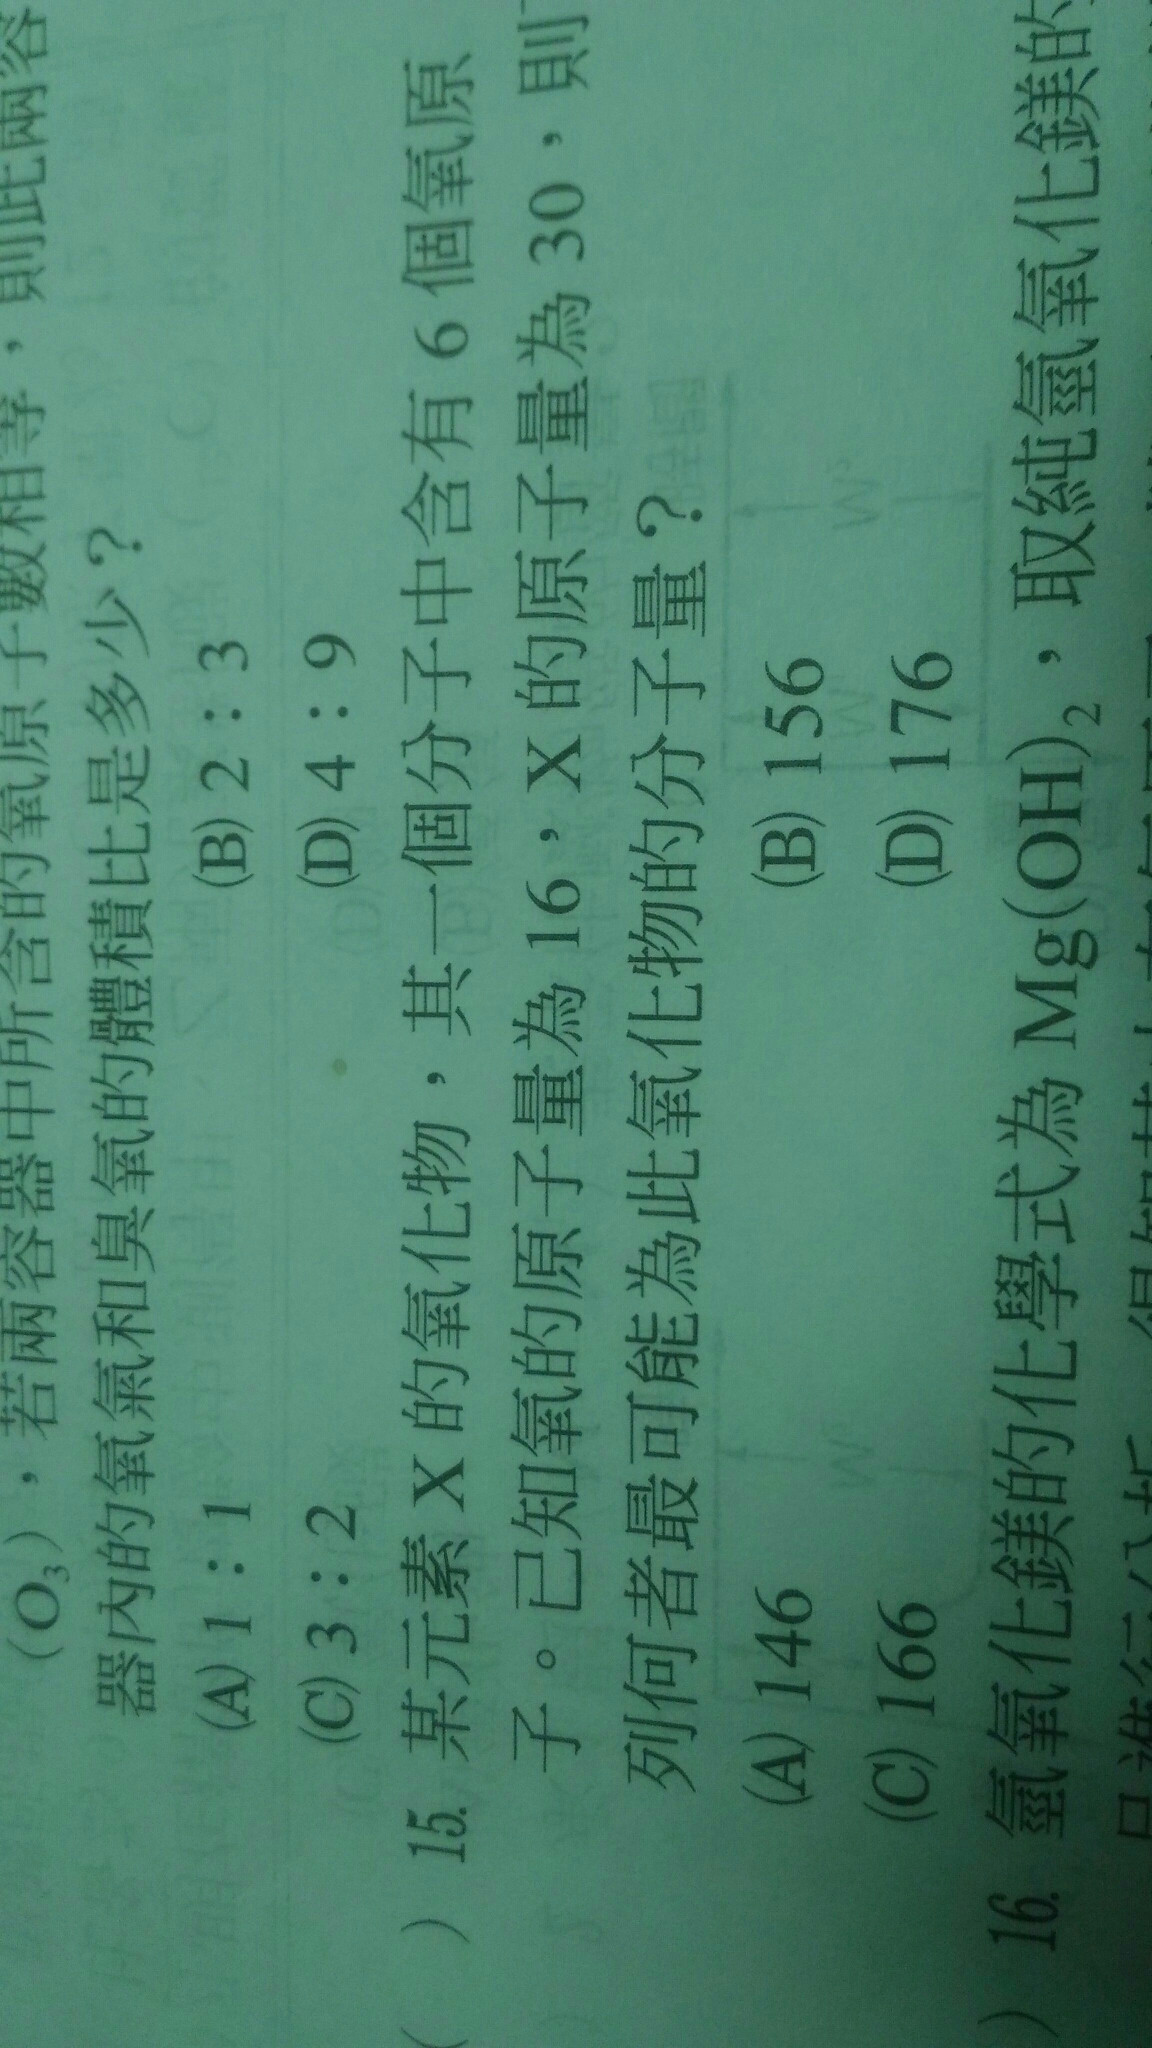 (O₃),若兩容器中所含的氧原子數相等,則此兩容
器內的氧氣和臭氧的體積比是多少?
(A) 1:1 (B) 2:3
(C) 3:2 (D) 4:9
( ) 15. 某元素 X 的氧化物,其一個分子中含有 6 個氧原
子。已知氧的原子量為 16,X 的原子量為 30,則下
列何者最可能為此氧化物的分子量?
(A) 146 (B) 156
(C) 166 (D) 176
) 16. 氫氧化鎂的化學式為 Mg(OH)₂,取純氫氧化鎂的